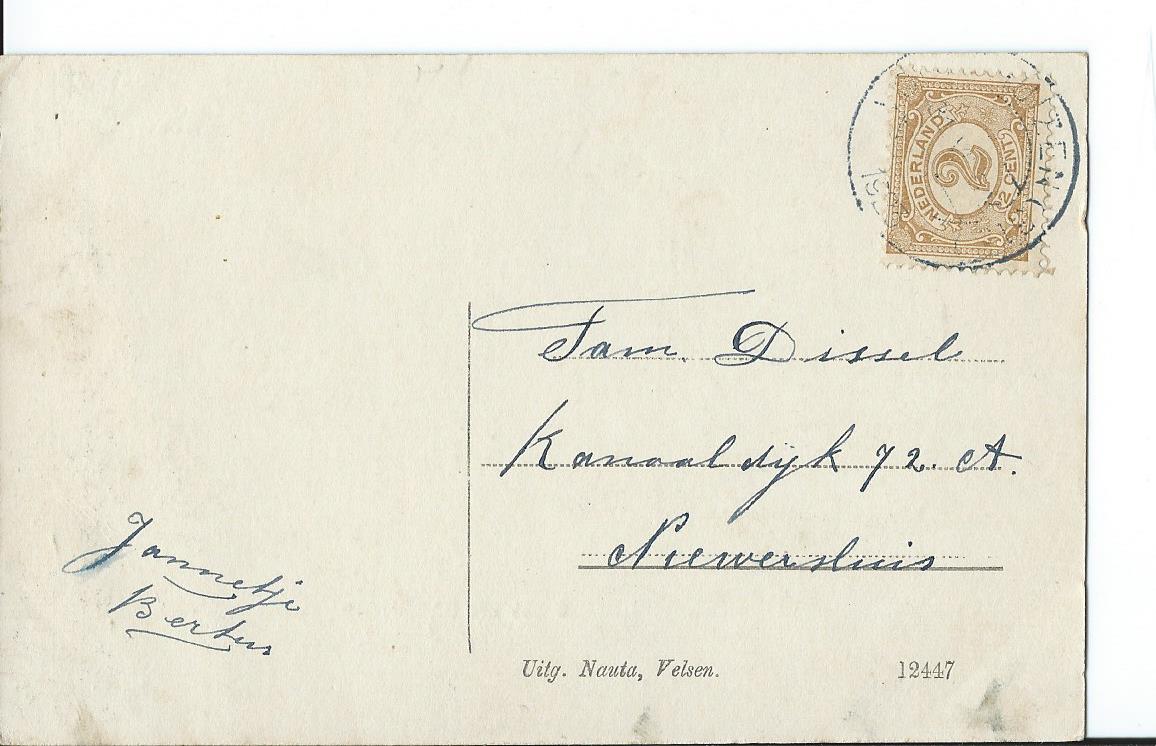 NEDERLAND
2
2 CENT
Fam. Dissel
Kanaaldijk 72. A.
Niewersluis
Jannetje
Bertus
Uitg. Nauta, Velsen.
12447